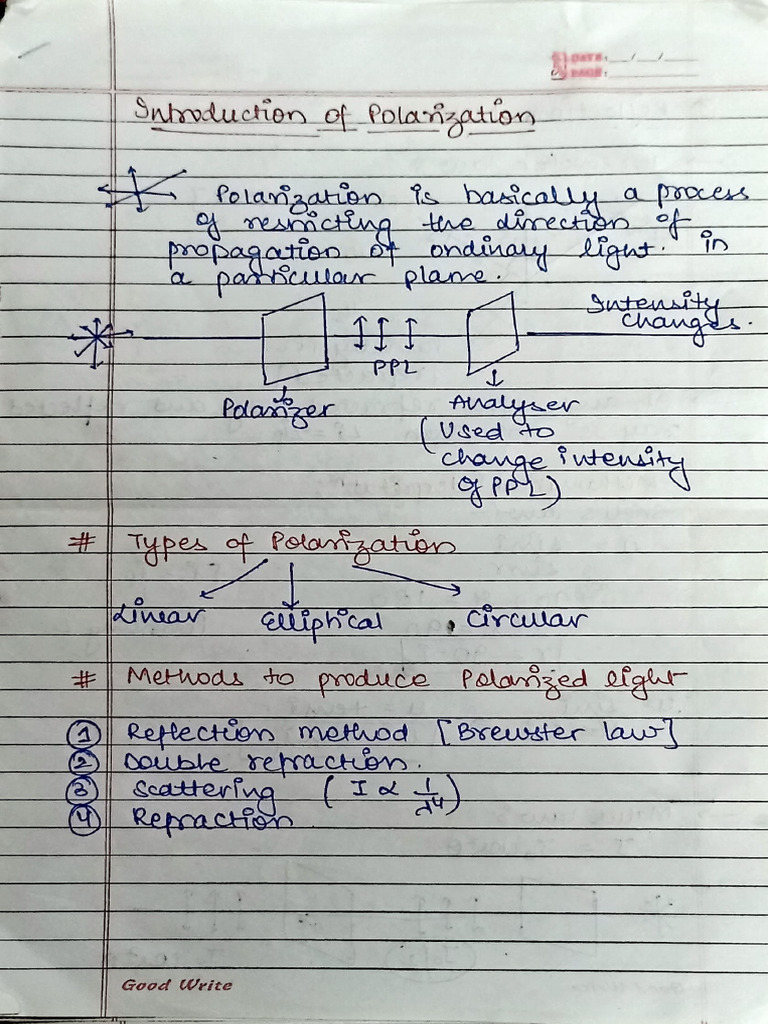 DATE: __/__/__
PAGE:
Introduction of Polarization
Polarization is basically a process
of resricting the direction of
propagation of ordinary light. in
a particular plane.
Intensity
changes.
PPL
Polarizer
Analyser
(Used to
change intensity
of PPL)
# Types of Polarization
Linear Elliptical Circular
# Methods to produce Polarized light
1 Reflection method [Brewster law]
2 Double refraction.
3 Scattering (I ∝ 1/λ4)
4 Refraction
Good Write